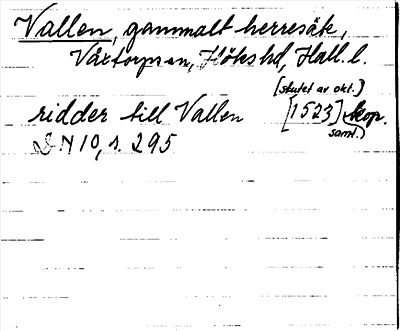 Vallen, gammalt herresäte,
Växtorps sn, Höks hd, Hall. l.
[slutet av okt.]
ridder till Vallen [1523] kop.
samt.)
DN 10, s. 295